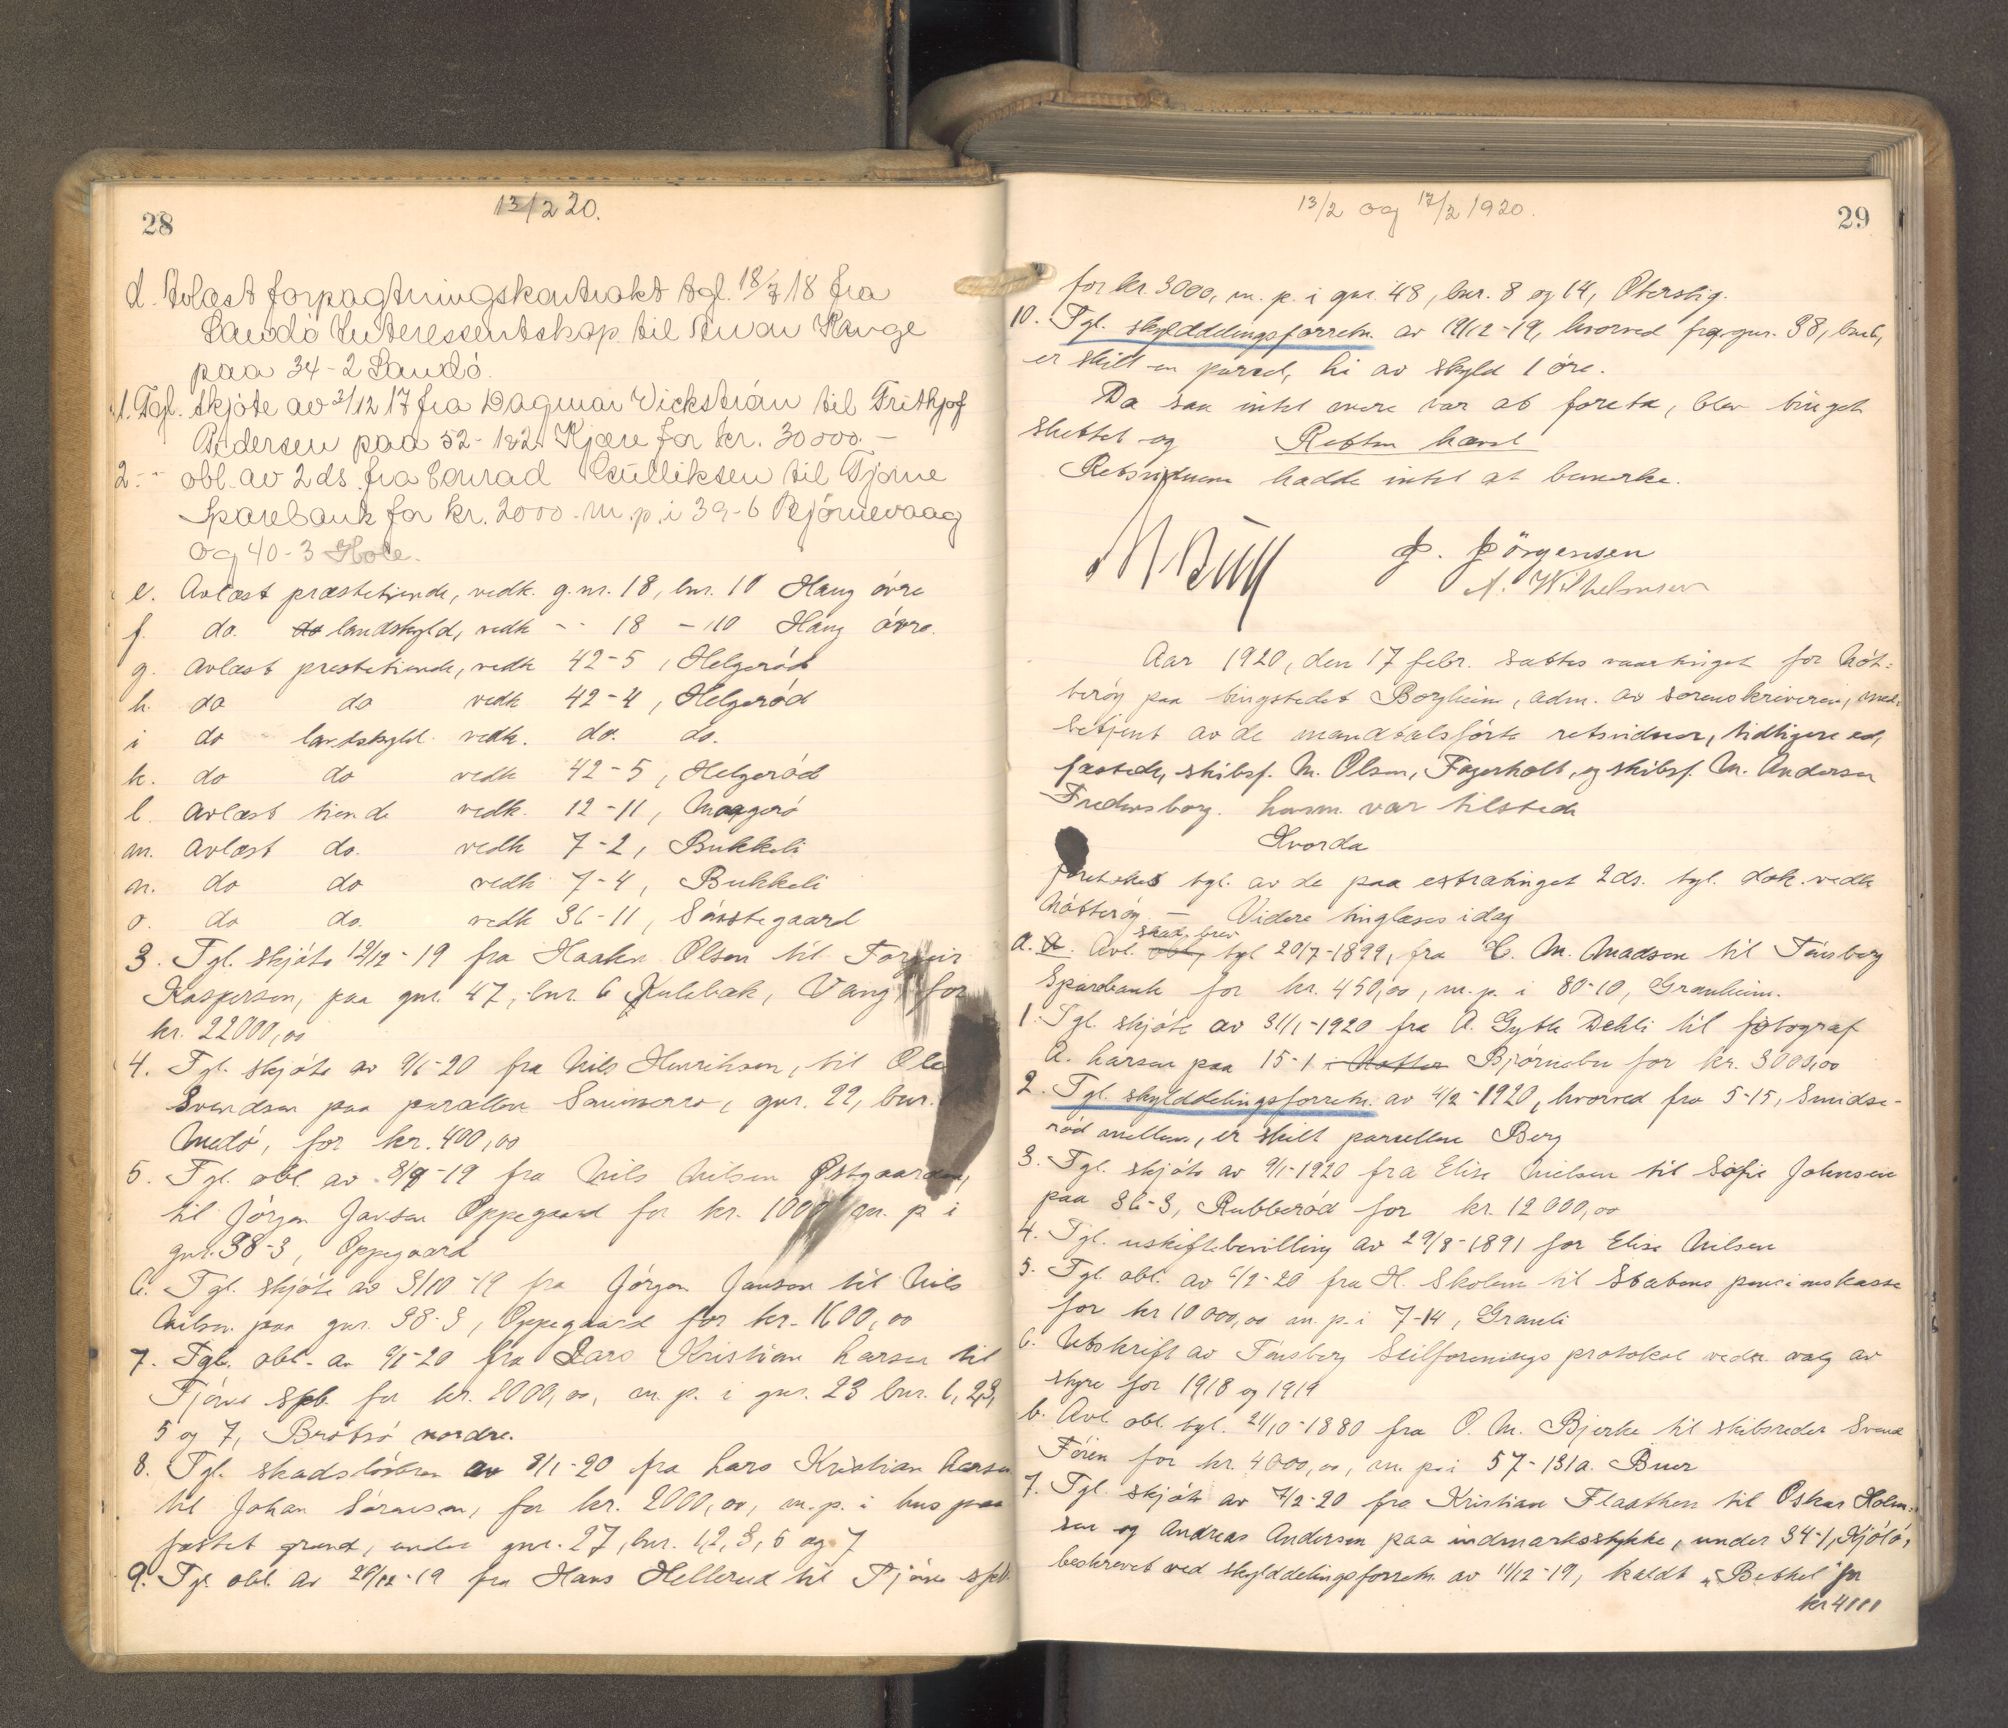 28
13/2 20.
d. Avlæst forpagtningskontrakt tgl. 18/7 18 fra
Sandö Interessentskap til Anvar Hauge
paa 34-2 Sandö.
1. Tgl. skjöte av 31/12 17 fra Dagmar Vickström til Frithjof
Andersen paa 52-182 Kjære for kr. 30000.-
2. -"- obl. av 2 ds. fra Conrad Gulliksen til Tjöme
Sparebank for kr. 2000 - m. p. i 39-6 Björnevaag
og 40-3 Hole.
e. Avlæst præstetiende, vedk. g.nr. 18, bnr. 10 Haug övre
f. do. landskyld, vedk -"- 18 -"10 Haug övre.
g. avlæst prestetiende, vedk 42-5, Helgeröd
h. do do vedk 42-4, Helgeröd
i do landskyld. vedk. do. do.
k. do do vedk 42-5, Helgeröd
l. avlæst tiende vedk. 12-11, Maagerö
m. avlæst do. vedk 7-2, Bukkeli
n. do do vedk 7-4, Bukkeli
o. do do. vedk 36-11, Sösstegaard
3. Tgl. skjöte 19/12-19 fra Haakn Olsen til Torgeir
Kaspersen, paa gnr. 47, bnr. 6 Kulebak, Vang, for
kr. 22000,00
4. Tgl. skjöte av 9/1-20 fra Nils Henriksen, til Ole
Svendsen paa parcellen Sommerro, gnr. 22, bnr.
Medö, for kr. 400,00
5. Tgl. obl. av 8/9-19 fra Nils Nilsen Östgaarden,
til Jörgen Jansen Oppegaard for kr. 1000 m. p. i
gnr. 38-3, Oppegaard
6. Tgl. skjöte av 3/10-19 fra Jörgen Jansen til Nils
Nilsen paa gnr. 38-3, Oppegaard for kr. 1600,00
7. Tgl. obl. av 9/1-20 fra Lars Kristian Larsen til
Tjöme spb. for kr. 2000,00, m. p. i gnr. 23 bnr. 1, 2, 3,
5 og 7, Brötsö nordre.
8. Tgl. skadslösbrev av 9/1-20 fra Lars Kristian Larsen
til Johan Sörensen, for kr. 2000,00, m. p. i hus paa
fæstet grund, under gnr. 27, bnr. 1, 2, 3, 5 og 7
9. Tgl. obl. av 29/12-19 fra Hans Hellerud til Tjöme spb.
13/2 og 17/2 1920.
29
for kr. 3000, m. p. i gnr. 48, bnr. 8 og 14, Oterstig.
10. Tgl. skylddelingsforretn. av 19/12-19, hvorved fra gnr. 38, bnr 6,
er skilt en parcel, av skyld 1 öre.
Da saa intet mere var at foreta, blev tinget
sluttet og Retten hævet
Retsvidnene hadde intet at bemerke.
J. Jörgensen
A. Wilhelmsen
Aar 1920, den 17 febr. sattes vaartinget for Nöt-
teröy paa tingstedet Borgheim, adm. av sorenskriveren, med-
betjent av de mandtalsförte retsvidner, tidligere ed,
fæstede, skibsf. M. Olsen, Fagerholt, og skibsf. M. Andersen
Fredensborg. Lensm. var tilstede
Hvorda
foretokes tgl. av de paa extratinget 2 ds. tgl. dok. vedk
Nötteröy. - Videre tinglæses idag
skad. brev
a. Avl. obl, tgl 20/7-1899, fra C. M. Madsen til Tönsberg
Sparebank for kr. 450,00, m. p. i 80-10, Granheim.
1. Tgl. skjöte av 31/1-1920 fra A. Gytle Dehli til fotograf
A. Larsen paa 15-1 i Nötter Björnebu for kr. 3000,00
2. Tgl. skylddelingsforretn. av 4/2-1920, hvorved fra 5-15, Smidse-
röd mellem, er skilt parcellen Berg
3. Tgl. skjöte av 9/1-1920 fra Elise Nielsen til Sofie Johnsen
paa 36-3, Rubberöd for kr. 12000,00
4. Tgl. uskiftebevilling av 29/8-1891 for Elise Nilsen
5. Tgl. obl. av 6/2-20 fra H. Skolem til Statens pensionskasse
for kr 10000,00 m. p. i 7-14, Granli
6. Utskrift av Tönsberg Seilforenings protokol vedr. valg av
styre for 1918 og 1919
b. Avl. obl. tgl. 24/10-1880 fra O. M. Bjerke til skibsreder Svend
Föien for kr. 4000,00, m. p. i 57-131a. Buer
7. Tgl. skjöte av 7/2-20 fra Kristian Flaathen til Oskar Holm-
sen og Andreas Andersen paa indmarksstykke, under 34-1, Kjölö,
beskrevet ved skylddelingsforretn. av 11/12-19, kaldt "Bethel" for
kr 4000